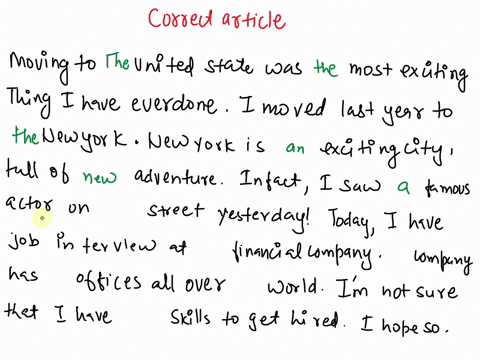 Correct article
Moving to The United state was the most exciting
Thing I have everdone. I moved last year to
the New york. New york is an exciting city,
full of new adventure. Infact, I saw a famous
actor on street yesterday! Today, I have
job interview at financial company. company
has offices all over world. I'm not sure
that I have skills to get hired. I hope so.